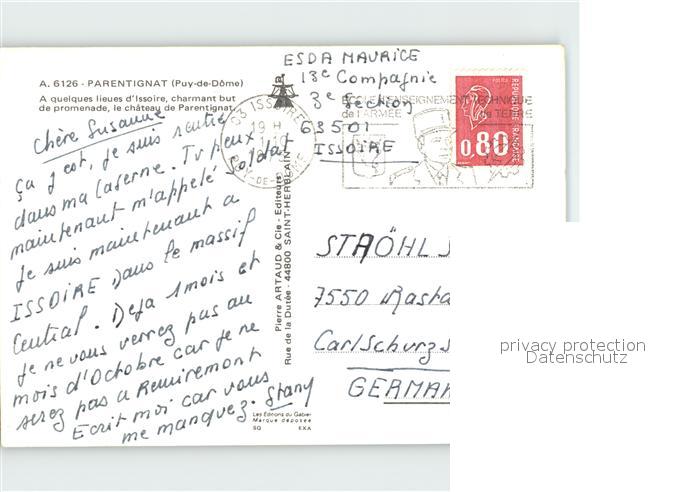 A. 6126 - PARENTIGNAT (Puy-de-Dôme)
A quelques lieues d'Issoire, charmant but
de promenade, le château de Parentignat.
Chère Susanne
Ça y est, je suis rentré
dans ma caserne. Tu peux
maintenant m'appelé soldat
Je suis maintenant a
ISSOIRE Dans le massif
Central. Deja 1 mois et
je ne vous verrez pas au
mois d'Octobre car je ne
serez pas a Remiremont
Ecrit moi car vous
me manquez. Stany
ESDA MAURICE
13e Compagnie
3e Section
63501
ISSOIRE
63 ISSOIRE
19 H
PUY-DE-DOME
ENSEIGNEMENT TECHNIQUE
de l'ARMÉE de TERRE
POSTES
REPUBLIQUE FRANÇAISE
0,80
Pierre ARTAUD & Cie - Editeurs
Rue de la Dutée - 44800 SAINT-HERBLAIN
STRÖHL S
7550 Rasta
Carlschurzs
GERMA
Les Editions du Gabier
Marque déposée
SQ EXA
privacy protection
Datenschutz